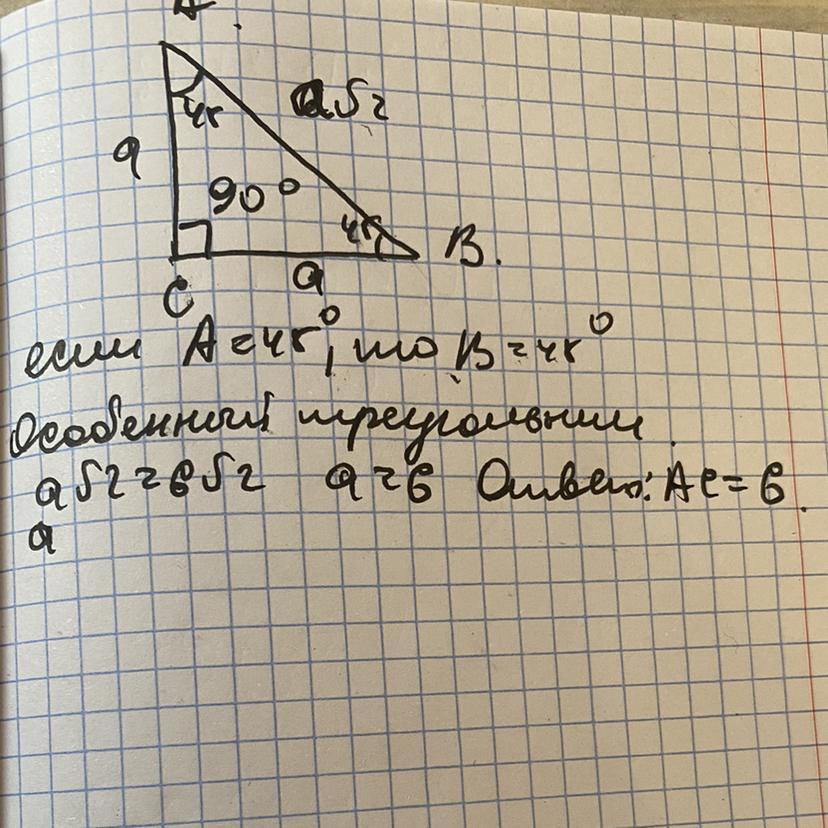 A.
45
a√2
a
90°
45
B.
a
C
если A=45°, то B=45°
Особенный треугольник.
a√2=6√2 a=6 Ответ: AC=6.
a